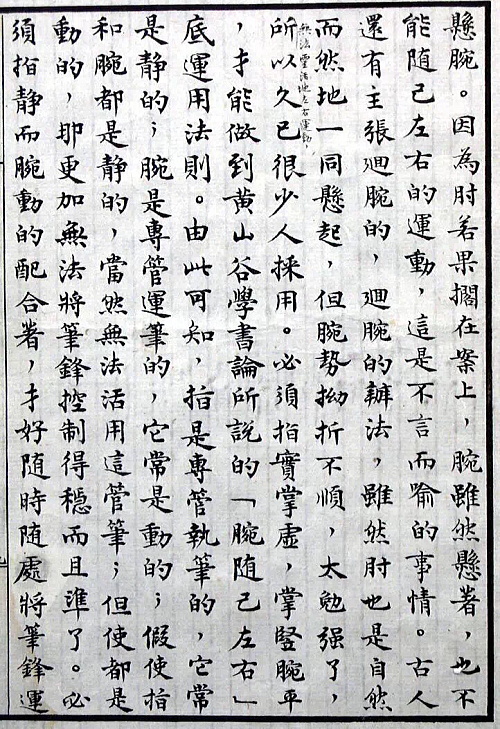 懸腕。因為肘若果擱在案上，腕雖然懸著，也不
能随己左右的運動，這是不言而喻的事情。古人
還有主張迴腕的，迴腕的辦法，雖然肘也是自然
而然地一同懸起，但腕勢拗折不順，太勉强了，
無法靈活地左右運動，
所以久已很少人採用。必須指實掌虛，掌竪腕平
，才能做到黄山谷學書論所說的「腕随己左右」
底運用法則。由此可知，指是專管執筆的，它常
是静的；腕是專管運筆的，它常是動的；假使指
和腕都是静的，當然無法活用這管筆；但使都是
動的，那更加無法將筆鋒控制得穩而且準了。必
須指静而腕動的配合著，才好随時随處將筆鋒運